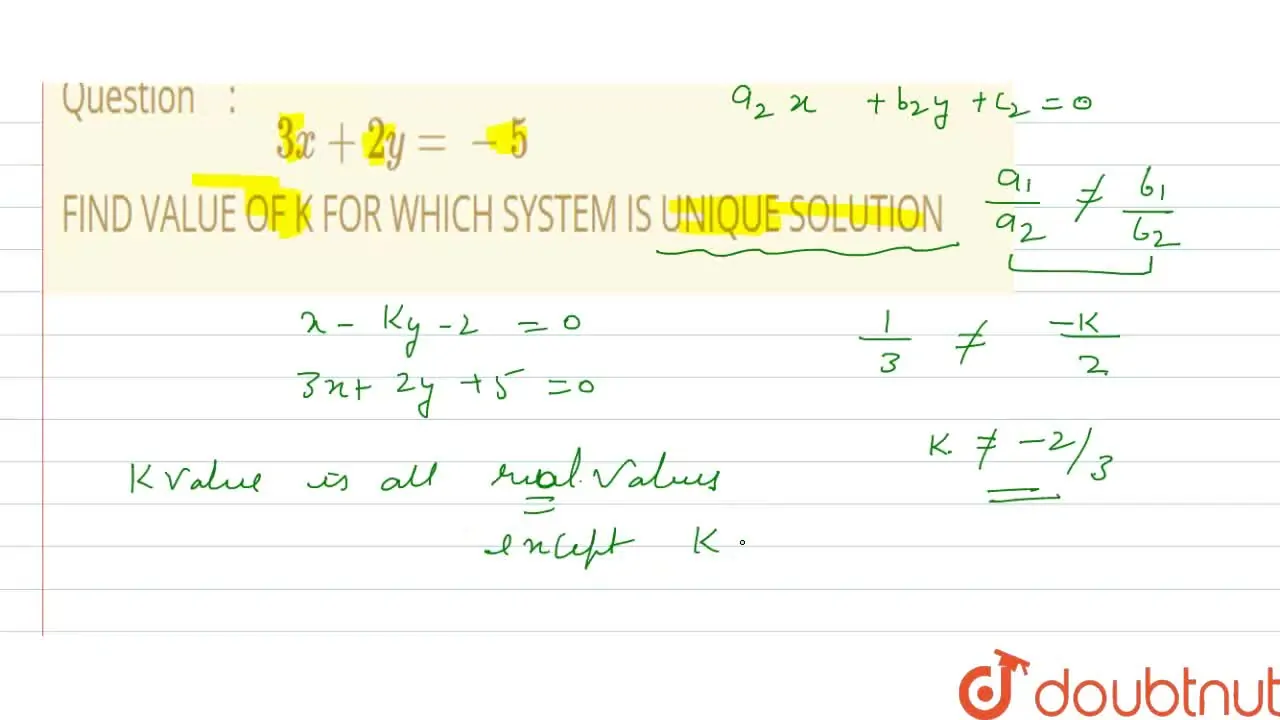 Question :
3x + 2y = − 5
FIND VALUE OF K FOR WHICH SYSTEM IS UNIQUE SOLUTION
a₂ x + b₂y + c₂ = 0
a₁/a₂ ≠ b₁/b₂
x - Ky - 2 = 0
3x + 2y + 5 = 0
1/3 ≠ -K/2
K ≠ -2/3
K value is all real values
except K
doubtnut